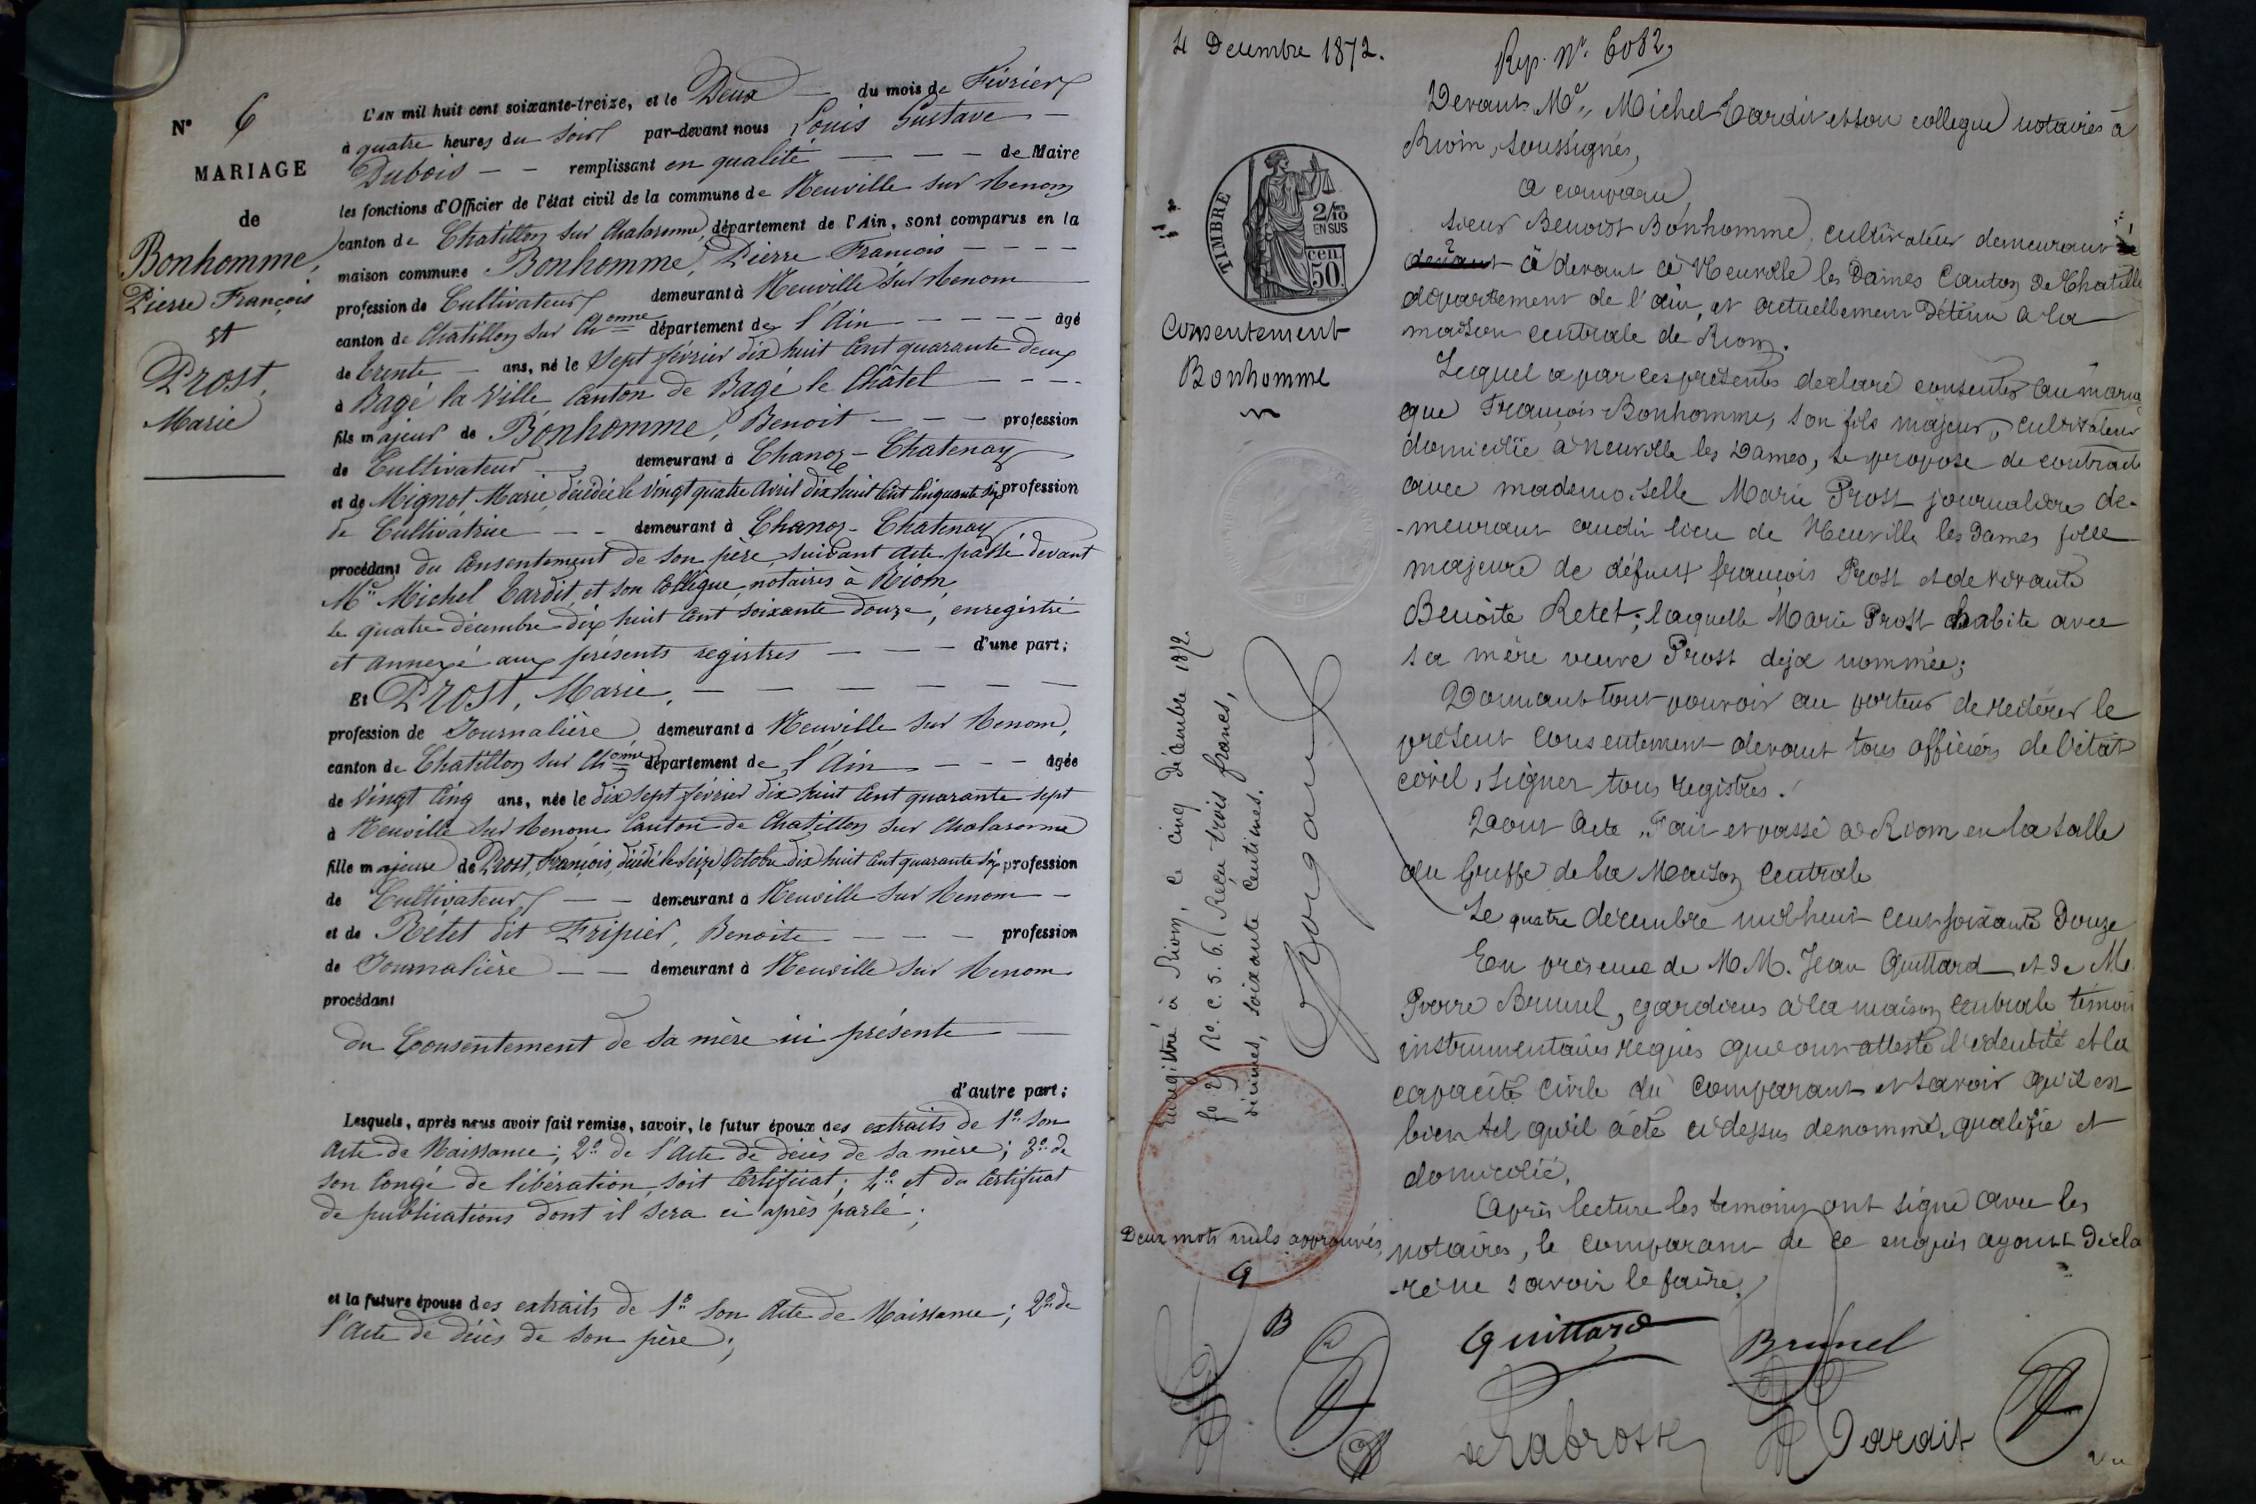 N° 6
MARIAGE
de
Bonhomme,
Pierre François
et
Prost,
Marie
L'AN mil huit cent soixante-treize, et le Deux — du mois de Février
à quatre heures du soir par-devant nous Louis Gustave —
Dubois — — remplissant en qualité — — — de Maire
les fonctions d'Officier de l'état civil de la commune de Neuville sur Renom
canton de Chatillon sur Chalaronne, département de l'Ain, sont comparus en la
maison commune Bonhomme, Pierre François — — — —
profession de Cultivateur demeurant à Neuville sur Renom
canton de Chatillon sur Chonne département de l'Ain — — — — âgé
de trente — ans, né le Sept février dix huit Cent quarante deux
à Bagé la Ville Canton de Bagé le Châtel — — —
fils majeur de Bonhomme, Benoit — — — profession
de Cultivateur — demeurant à Chanoz-Chatenay
et de Mignot, Marie, décédée le vingt quatre Avril dix huit Cent Cinquante six profession
de Cultivatrice — — demeurant à Chanoz-Chatenay
procédant du Consentement de son père, suivant Acte passé devant
Me Michel Tardit, et son Collègue, notaires à Riom,
le quatre décembre dix huit Cent soixante douze, enregistré
et annexé aux présents registres — — — d'une part;
Et Prost, Marie, — — — — — —
profession de Journalière, demeurant à Neuville sur Renom,
canton de Chatillon sur Chonne département de l'Ain — — — âgée
de Vingt Cinq ans, née le dix sept février dix huit Cent quarante sept
à Neuville sur Renom Canton de Chatillon sur Chalaronne
fille majeure de Prost, François, décédé le Seize Octobre dix huit Cent quarante six profession
de Cultivateur — — demeurant à Neuville sur Renom —
et de Rétet dit Fripier, Benoite — — — profession
de Journalière — — demeurant à Neuville sur Renom
procédant
du Consentement de sa mère ici présente —
d'autre part;
Lesquels, après nous avoir fait remise, savoir, le futur époux des extraits de 1° son
Acte de Naissance; 2° de l'Acte de décès de sa mère; 3° de
son Congé de libération, soit Certificat; 4° et du Certificat
de publications dont il sera ci après parlé;
et la future épouse des extraits de 1° son Acte de Naissance; 2° de
l'Acte de décès de son père;
4 Decembre 1872.
Rep. N° 6082,
TIMBRE
2/10
EN SUS
cen
50.
Consentement
Bonhomme
Devant Me Michel Tardit et son collegue notaires à
Riom, soussignés,
a comparu
Sieur Benoist Bonhomme, cultivateur demeurant
devant ci devant à Neuville les Dames Canton de Chatille
département de l'ain, et actuellement Détenu a la
maison centrale de Riom.
Lequel a par ces présentes declaré consenter au maria
que François Bonhomme, son fils majeur, cultivateur
domicilié à Neuville les Dames, se propose de contracté
avec mademoiselle Marie Prost journalière de-
-meurant audit lieu de Neuville les Dames fille
majeure de défunt françois Prost et de vivante
Benoite Retet; laquelle Marie Prost habite avec
sa mère veuve Prost deja nommée;
Donnant tout pouvoir au porteur de réitérer le
présent consentement devant tous officiers de l'état
civil, signer tous registres.
Dont Acte, Fait et passé à Riom en la salle
du Greffe de la Maison Centrale
Le quatre décembre mil huit cent soixante Douze
En présence de M.M. Jean Quittard et de M.
Pierre Brunel, gardiens à la maison centrale témoin
instrumentaires requis que ont attesté l'identité et la
capacité civile du comparant et savoir qu'il est
bien tel qu'il a été ci dessus dénommé, qualifié et
domicilié.
Après lecture les temoins ont signé avec les
notaires, le comparant de ce enquis ayant décla
-ré ne savoir le faire.
Enregistré à Riom, ce cinq décembre 1872.
fo 27 Ro. C. 5. 6. Reçu trois francs,
décimes, soixante centimes.
Deux mots nuls approuvés
Q
B
Quittard
Brunel
de Labrosse
Tardit